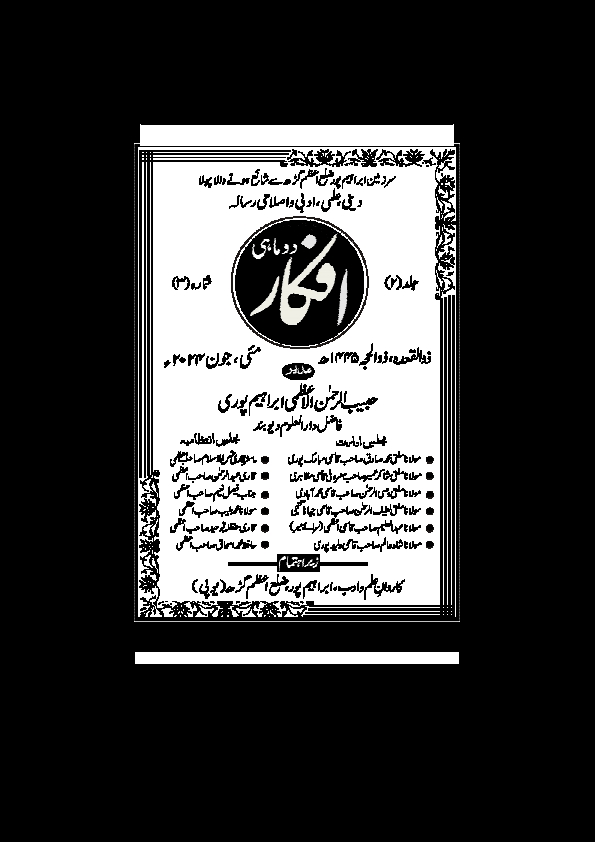 سرزمین ابراہیم پور ضلع اعظم گڑھ سے شائع ہونے والا پہلا
دینی، علمی، ادبی و اصلاحی رسالہ
دو ماہی
افکار
جلد (۲)
شمارہ (۳)
ذوالقعدہ، ذوالحجہ ۱۴۴۵ھ
مئی، جون ۲۰۲۴ء
مدیر
حبیب الرحمٰن الاعظمی ابراہیم پوری
فاضل دارالعلوم دیوبند
مجلس ادارت
مولانا مفتی محمد صادق صاحب قاسمی مبارک پوری
مولانا مفتی شاکر صاحب قاسمی مظاہری
مولانا مفتی الرحمٰن صاحب قاسمی محمد آبادی
مولانا مفتی لطیف الرحمٰن صاحب قاسمی
مولانا عبدالعلیم صاحب قاسمی اعظمی
مولانا شاہ عالم صاحب قاسمی ولید پوری
مجلس انتظامیہ
ماسٹر الاسلام صاحب اعظمی
قاری عبدالرحمٰن صاحب اعظمی
جناب فیصل نعیم صاحب اعظمی
مولانا محمد صاحب اعظمی
قاری صاحب اعظمی
حافظ محمد اسحاق صاحب اعظمی
زیر اہتمام
کاروانِ علم و ادب، ابراہیم پور، ضلع اعظم گڑھ (یوپی)